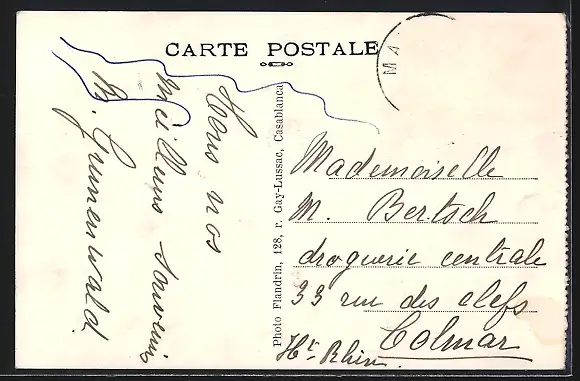 CARTE POSTALE
MA
Tous nos
meilleurs souvenirs
M. Grunenwald
Photo Flandrin, 128, r. Gay-Lussac, Casablanca
Mademoiselle
M. Bertsch
droguerie centrale
33 rue des clefs
Colmar
Ht Rhin